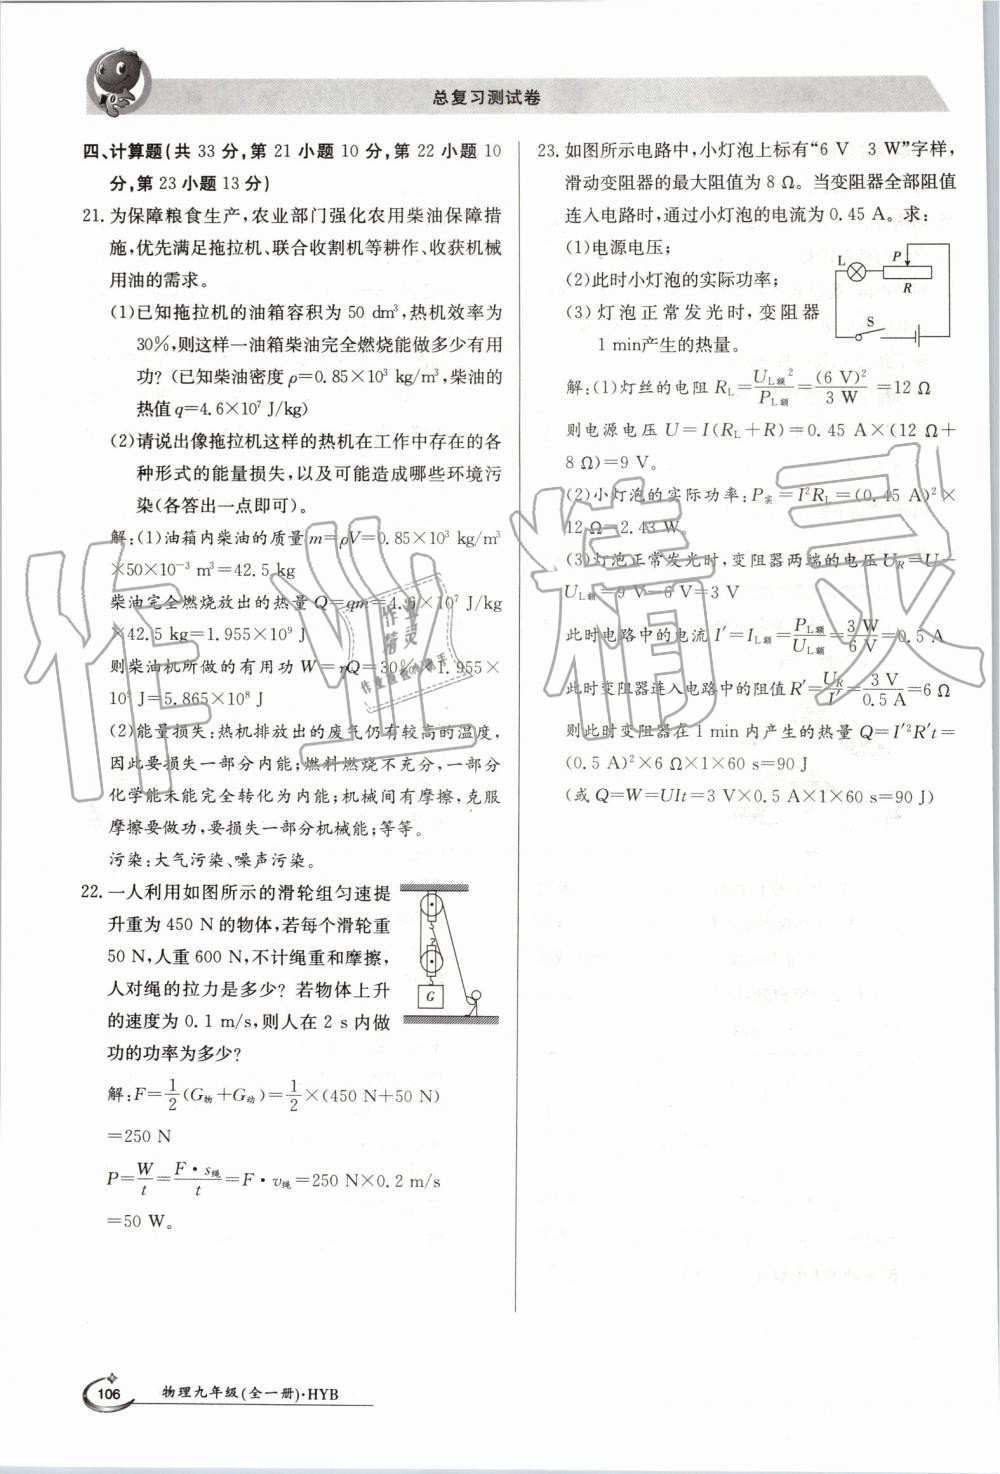 总复习测试卷
四、计算题(共 33 分,第 21 小题 10 分,第 22 小题 10
分,第 23 小题 13 分)
21. 为保障粮食生产,农业部门强化农用柴油保障措
施,优先满足拖拉机、联合收割机等耕作、收获机械
用油的需求。
(1)已知拖拉机的油箱容积为 50 dm³,热机效率为
30%,则这样一油箱柴油完全燃烧能做多少有用
功? (已知柴油密度 ρ=0.85×10³ kg/m³,柴油的
热值 q=4.6×10⁷ J/kg)
(2)请说出像拖拉机这样的热机在工作中存在的各
种形式的能量损失,以及可能造成哪些环境污
染(各答出一点即可)。
解:(1)油箱内柴油的质量 m=ρV=0.85×10³ kg/m³
×50×10⁻³ m³=42.5 kg
柴油完全燃烧放出的热量 Q=qm=4.6×10⁷ J/kg
×42.5 kg=1.955×10⁹ J
则柴油机所做的有用功 W=ηQ=30%×1.955×
10⁹ J=5.865×10⁸ J
(2)能量损失:热机排放出的废气仍有较高的温度,
因此要损失一部分内能;燃料燃烧不充分,一部分
化学能未能完全转化为内能;机械间有摩擦,克服
摩擦要做功,要损失一部分机械能;等等。
污染:大气污染、噪声污染。
22. 一人利用如图所示的滑轮组匀速提
升重为 450 N 的物体,若每个滑轮重
50 N,人重 600 N,不计绳重和摩擦,
人对绳的拉力是多少? 若物体上升
的速度为 0.1 m/s,则人在 2 s 内做
功的功率为多少?
G
解:F=1/2(G物+G动)=1/2×(450 N+50 N)
=250 N
P=W/t=F·s绳/t=F·v绳=250 N×0.2 m/s
=50 W。
23. 如图所示电路中,小灯泡上标有“6 V 3 W”字样,
滑动变阻器的最大阻值为 8 Ω。当变阻器全部阻值
连入电路时,通过小灯泡的电流为 0.45 A。求:
(1)电源电压;
(2)此时小灯泡的实际功率;
(3)灯泡正常发光时,变阻器
1 min产生的热量。
L
P
R
S
解:(1)灯丝的电阻 R_L=U_L额²/P_L额=(6 V)²/3 W=12 Ω
则电源电压 U=I(R_L+R)=0.45 A×(12 Ω+
8 Ω)=9 V。
(2)小灯泡的实际功率:P实=I²R_L=(0.45 A)²×
12 Ω=2.43 W。
(3)灯泡正常发光时,变阻器两端的电压 U_R=U-
U_L额=9 V-6 V=3 V
此时电路中的电流 I′=I_L额=P_L额/U_L额=3 W/6 V=0.5 A
此时变阻器连入电路中的阻值 R′=U_R/I′=3 V/0.5 A=6 Ω
则此时变阻器在 1 min 内产生的热量 Q=I′²R′t=
(0.5 A)²×6 Ω×1×60 s=90 J
(或 Q=W=UIt=3 V×0.5 A×1×60 s=90 J)
作业精灵
作业
精灵
106
物理九年级(全一册)·HYB